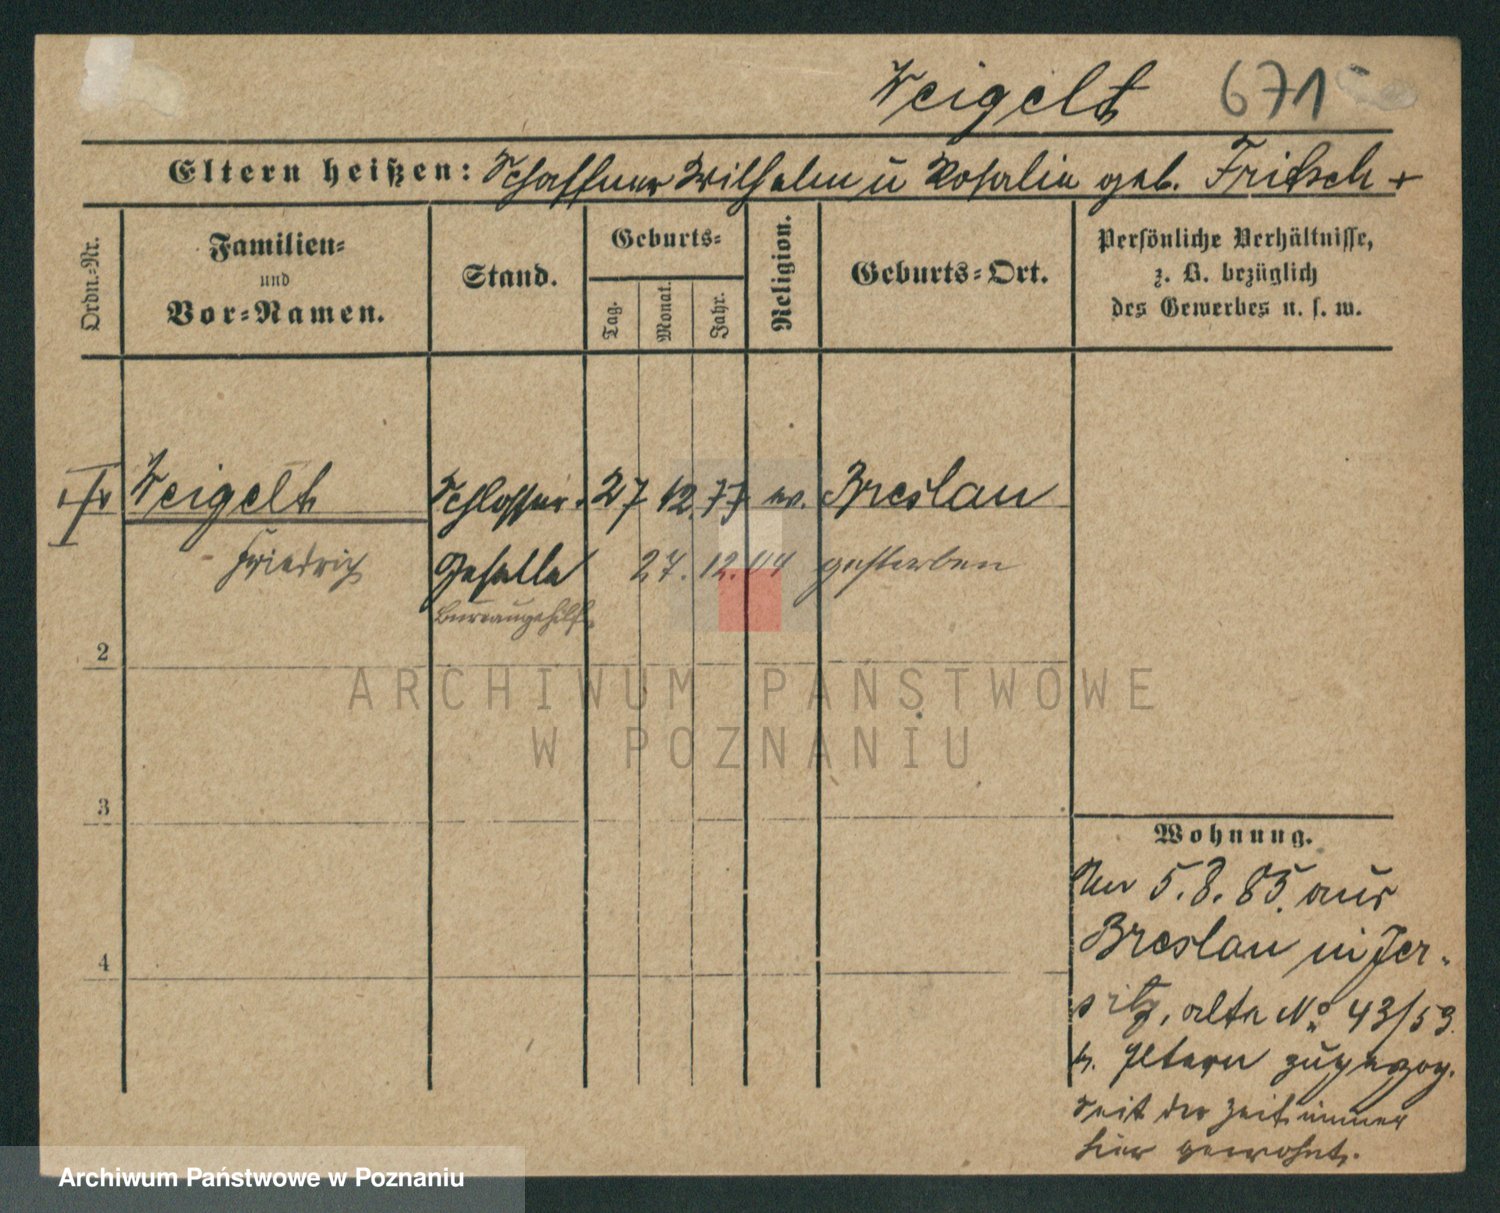 Weigelt 671
Eltern heißen: Schaffner Wilhelm u Rosalie geb. Fritsch +
Ordn.-Nr.
Familien-
und
Vor-Namen.
Stand.
Geburts-
Tag.
Monat.
Jahr.
Religion.
Geburts-Ort.
Persönliche Verhältnisse,
z. B. bezüglich
des Gewerbes u. s. w.
Weigelt Schlosser- 27 12. 77 ev. Breslau
Friedrich Geselle 27. 12. 04 gestorben
Bureaugehilfe
2
ARCHIWUM PAŃSTWOWE
W POZNANIU
3
4
Wohnung.
Am 5. 8. 85. aus
Breslau in Jer-
sitz, alte No 43/53.
Eltern zugezog.
seit der Zeit immer
hier gewohnt.
Archiwum Państwowe w Poznaniu